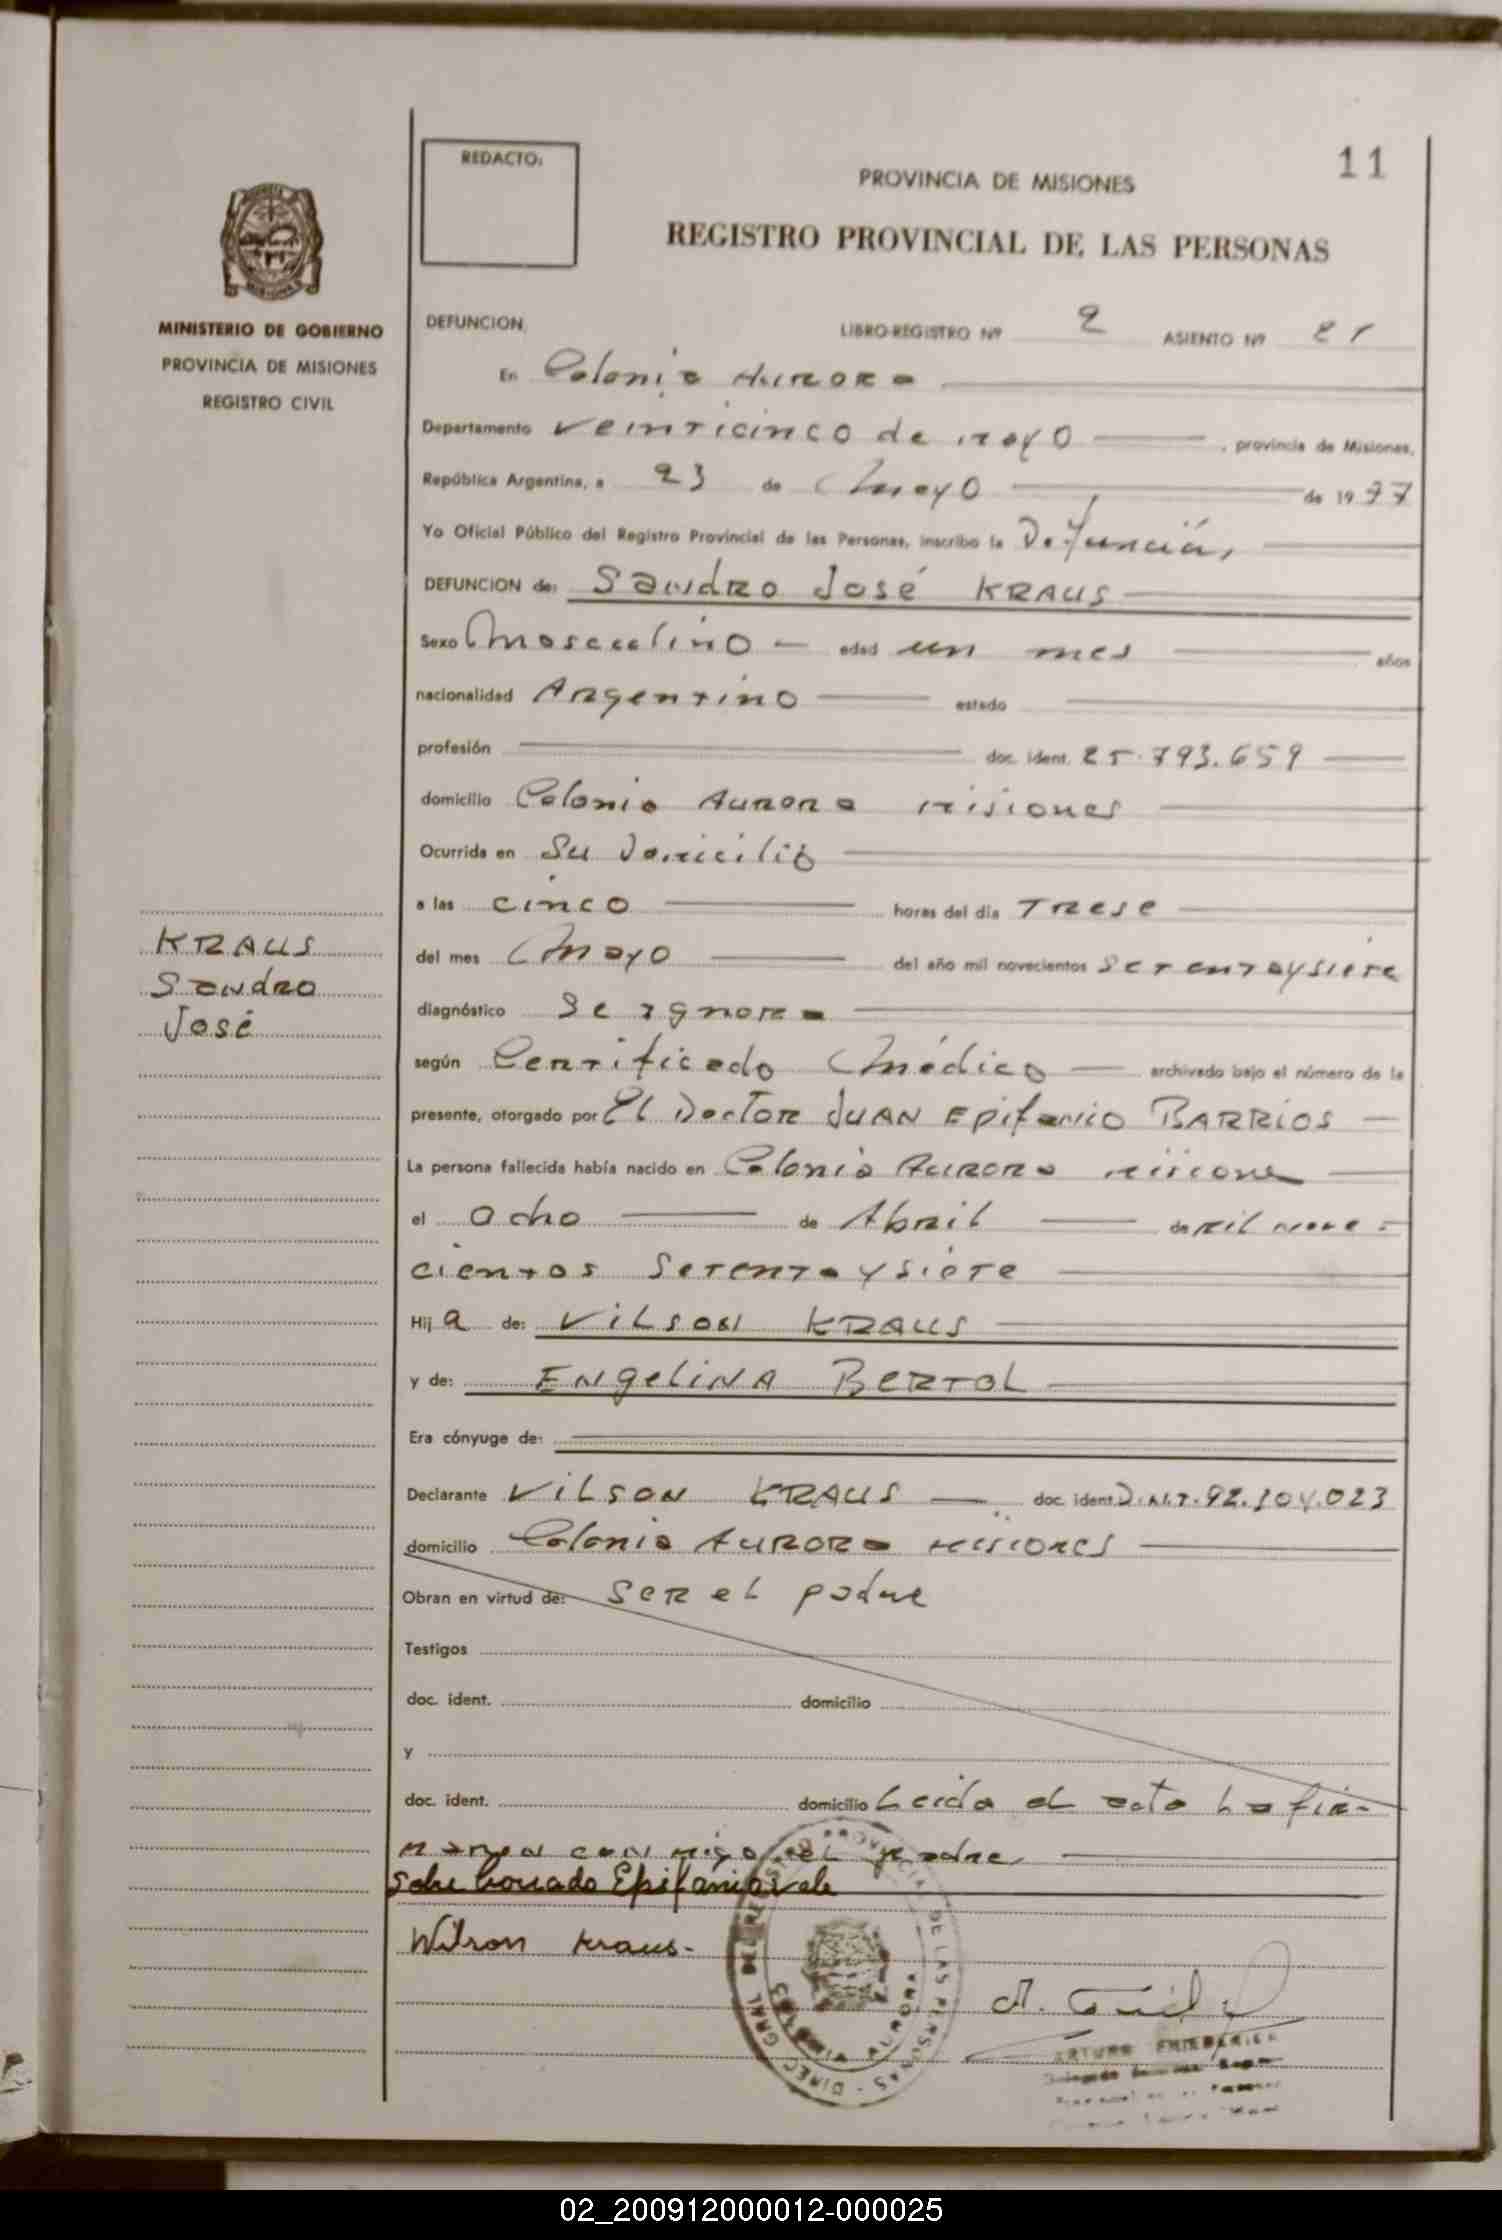 11
REDACTO:
PROVINCIA DE MISIONES
REGISTRO PROVINCIAL DE LAS PERSONAS
MINISTERIO DE GOBIERNO
PROVINCIA DE MISIONES
REGISTRO CIVIL
DEFUNCION LIBRO-REGISTRO Nº 2 ASIENTO Nº 21
En Colonia Aurora
Departamento Veinticinco de mayo , provincia de Misiones,
República Argentina, a 23 de Mayo de 1977
Yo Oficial Público del Registro Provincial de las Personas, inscribo la Defunción,
DEFUNCION de: Sandro José KRAUS
Sexo Masculino edad un mes años
nacionalidad Argentino estado
profesión doc. ident. 25.793.659
domicilio Colonia Aurora Misiones
Ocurrida en Su Domicilio
a las cinco horas del día Trese
del mes Mayo del año mil novecientos setentaysiete
KRAUS
Sandro
José
diagnóstico Se ignora
según Certificado Médico archivado bajo el número de la
presente, otorgado por El Doctor JUAN Epifanio BARRIOS
La persona fallecida había nacido en Colonia Aurora Misiones
el Ocho de Abril de mil nove-
cientos Setentaysiete
Hij a de: VILSON KRAUS
y de: ENgeLiNA BERTOL
Era cónyuge de:
Declarante VILSON KRAUS doc. ident. D.N.I. 92.104.023
domicilio Colonia Aurora Misiones
Obran en virtud de: Ser el padre
Testigos
doc. ident. domicilio
y
doc. ident. domicilio Leida el acta la fir-
man con migo el padre
Sobre borrado Epifanio Vale
Wilson Kraus.
DIREC. GRAL DEL REGISTRO PROVINCIAL DE LAS PERSONAS
AURORA
ARTURO
02_200912000012-000025